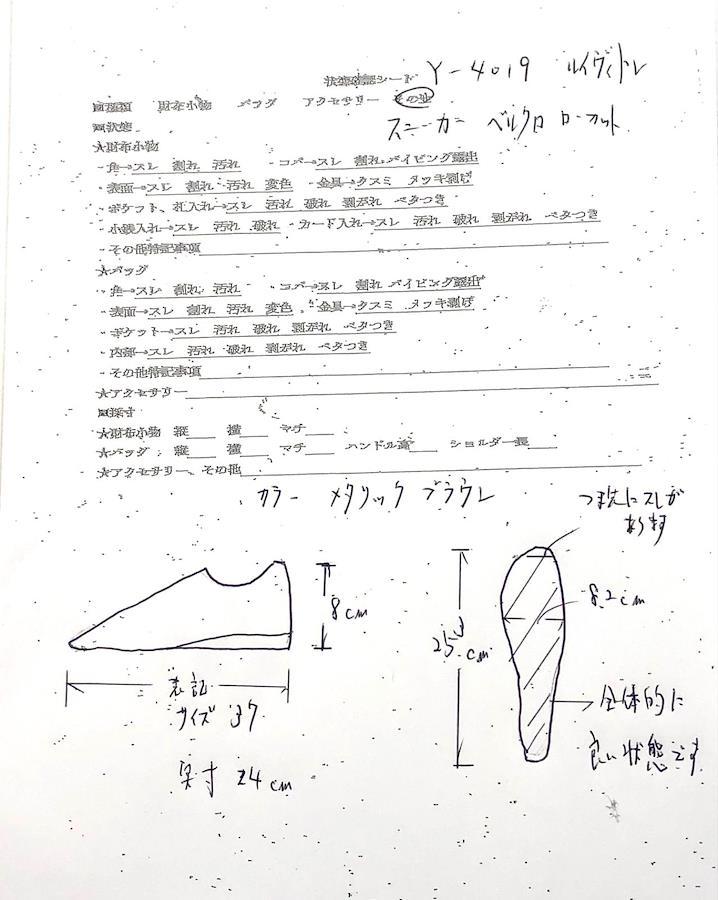 状態確認シート Y-4019 ルイヴィトン
■種類 財布小物 バッグ アクセサリー その他
スニーカー ベルクロ ローカット
■状態
★財布小物
・角→スレ 割れ 汚れ ・コバ→スレ 割れ パイピング露出
・表面→スレ 割れ 汚れ 変色 ・金具→クスミ メッキ剥げ
・ポケット、札入れ→スレ 汚れ 破れ 剥がれ ベタつき
・小銭入れ→スレ 汚れ 破れ ・カード入れ→スレ 汚れ 破れ 剥がれ ベタつき
・その他特記事項
★バッグ
・角→スレ 割れ 汚れ ・コバ→スレ 割れ パイピング露出
・表面→スレ 割れ 汚れ 変色 ・金具→クスミ メッキ剥げ
・ポケット→スレ 汚れ 破れ 剥がれ ベタつき
・内部→スレ 汚れ 破れ 剥がれ ベタつき
・その他特記事項
★アクセサリー
■採寸
★財布小物 縦 横 マチ
★バッグ 縦 横 マチ ハンドル高 ショルダー長
★アクセサリー、その他
カラー メタリック ブラウン
つま先にスレが
あります
8cm
8.2cm
25 cm
表記
サイズ 37
実寸 24cm
全体的に
良い状態です